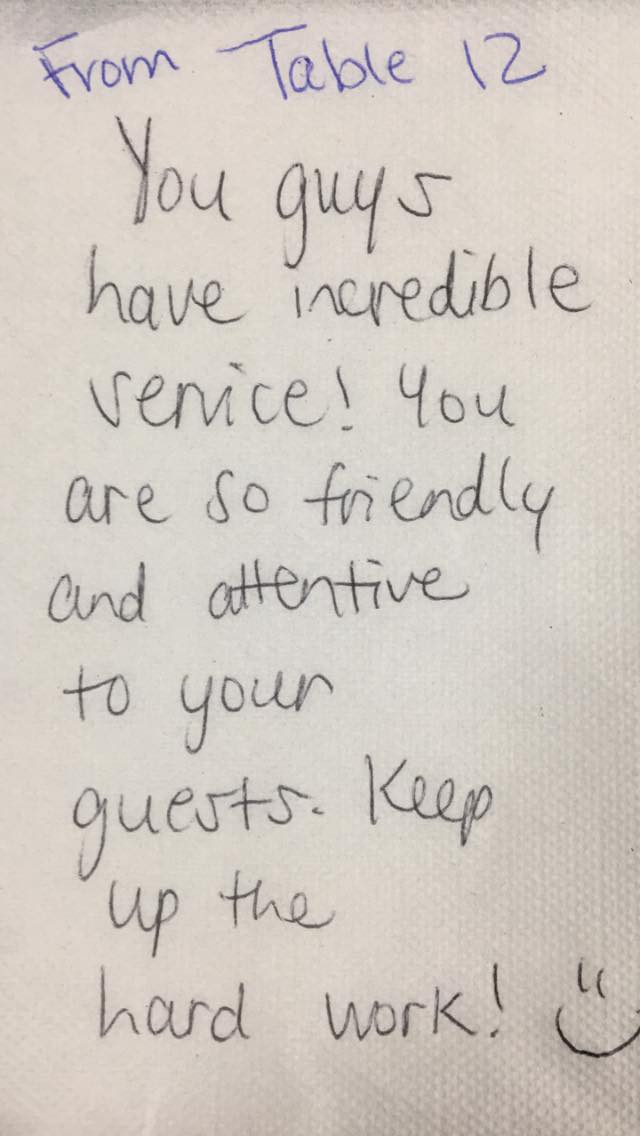 From Table 12
You guys
have incredible
service! You
are so friendly
and attentive
to your
guests. Keep
up the
hard work!